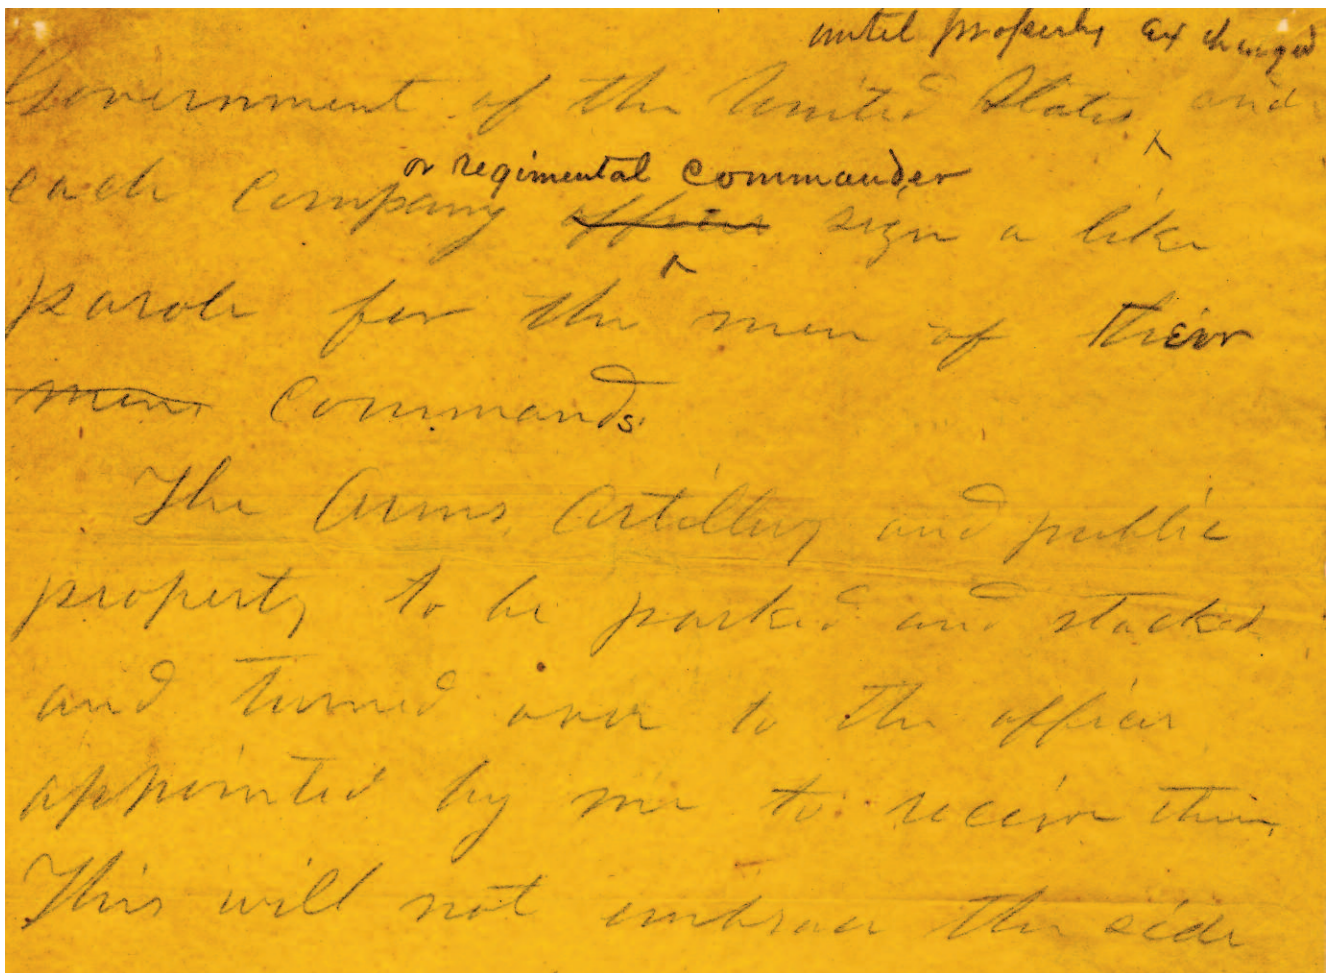 until properly exchanged
Government of the United States and
or regimental commander
each company officer sign a like
parole for the men of their
mens commands.
The Arms, Artillery and public
property to be parked and stacked
and turned over to the officer
appointed by me to receive them.
This will not embrace the side